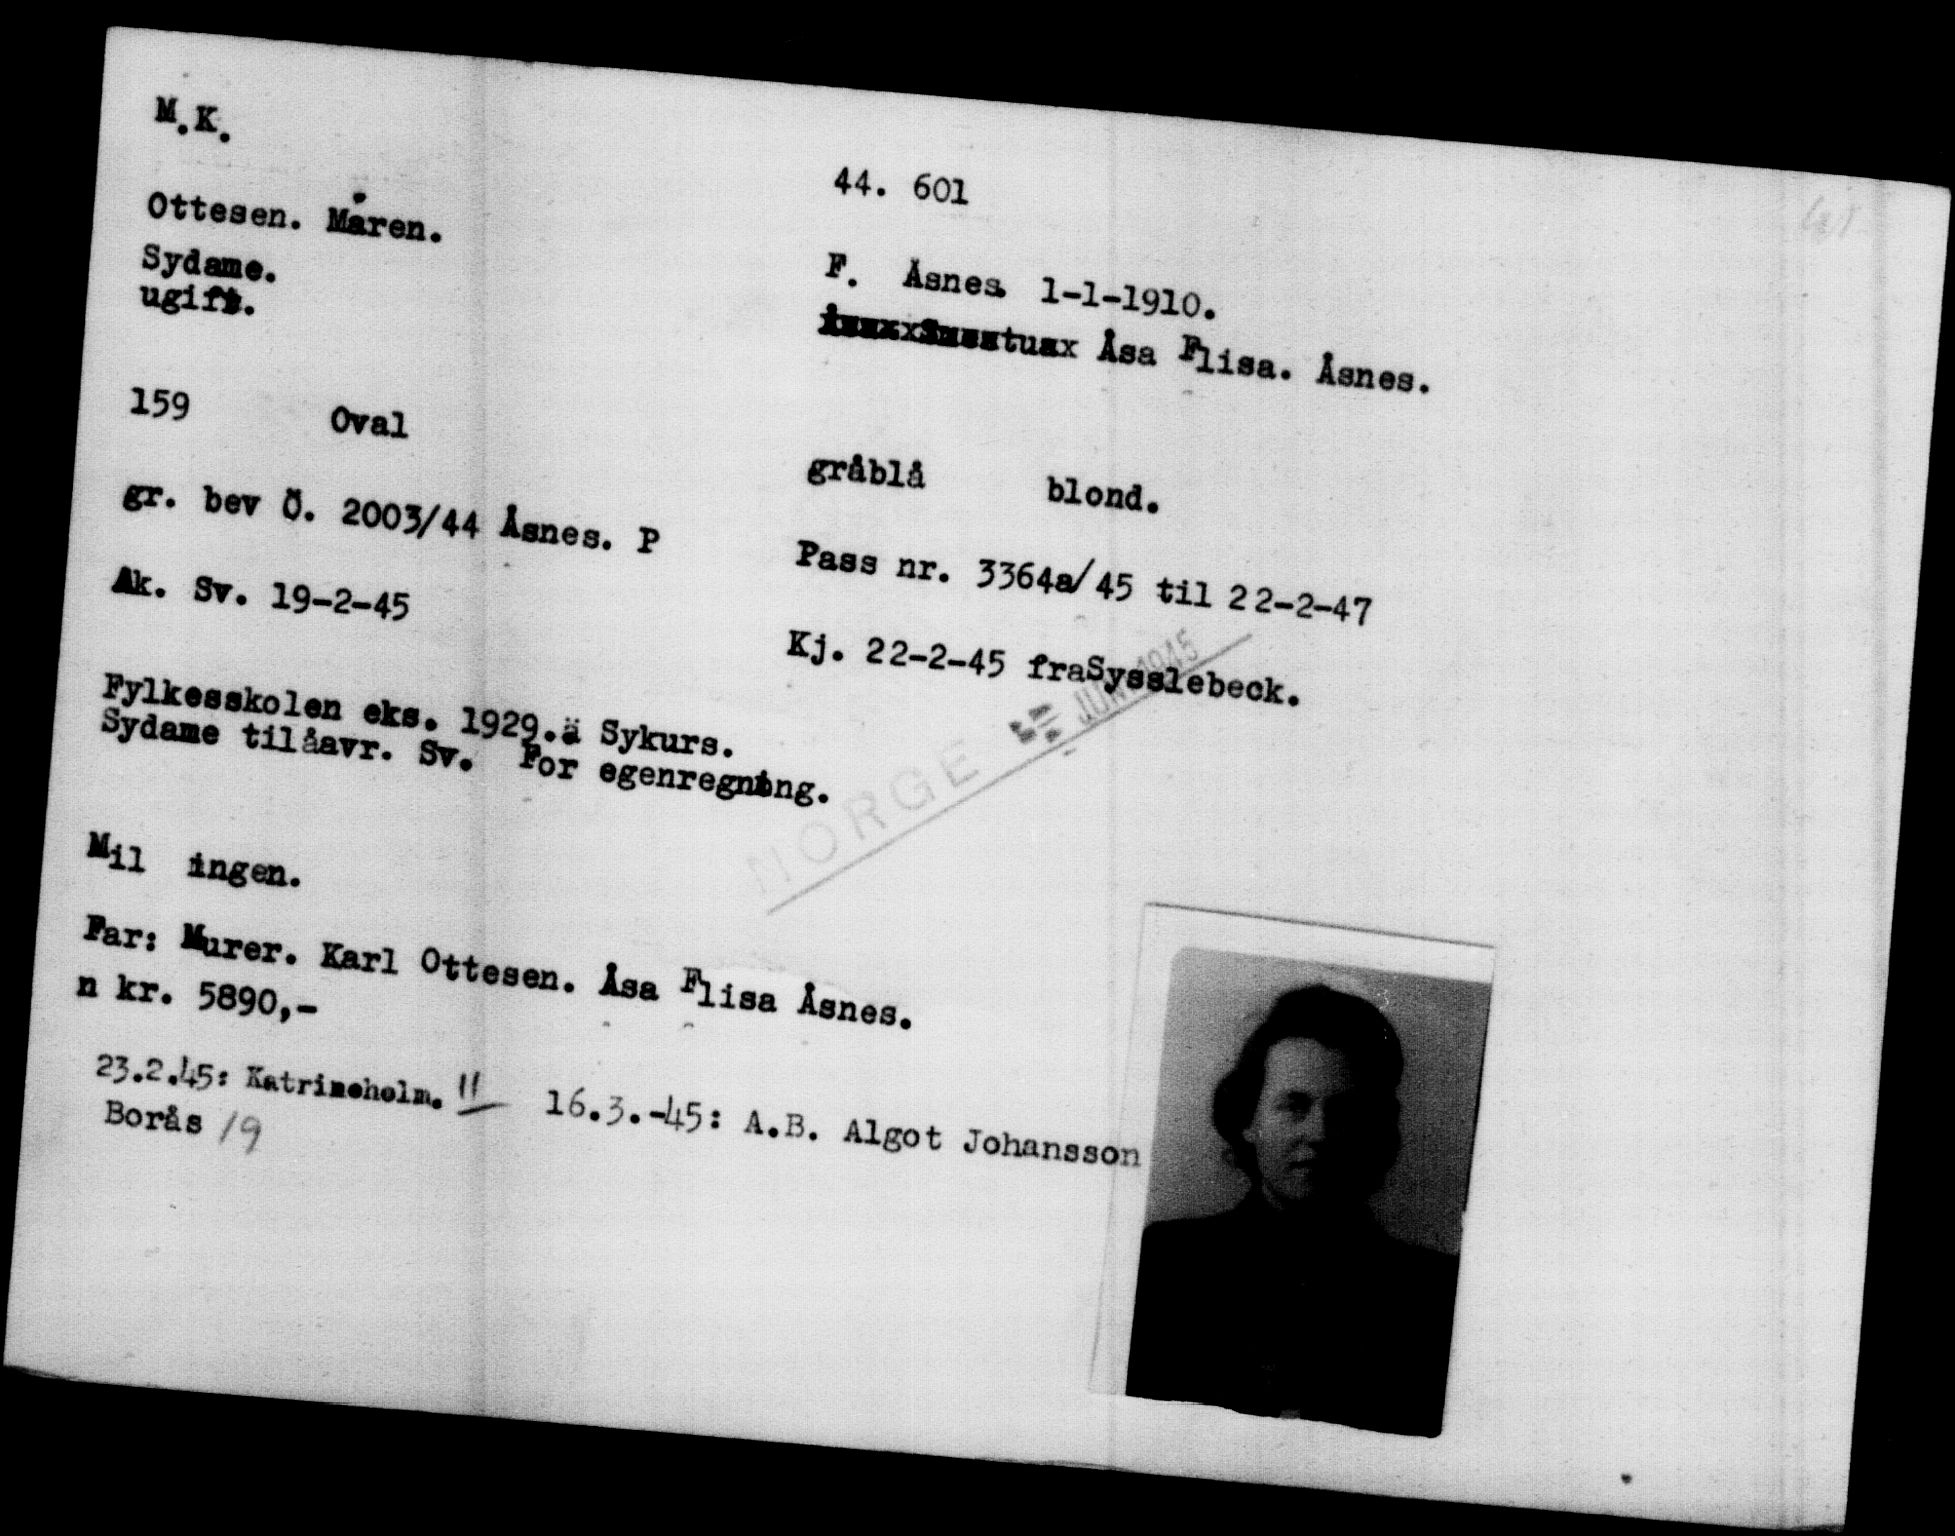 M.K.
44. 601
Ottesen. Måren.
F. Åsnes. 1-1-1910.
Sydame.
ugift.
Åsa Flisa. Åsnes.
159 Oval
gråblå blond.
gr. bev Ö. 2003/44 Åsnes. P
Pass nr. 3364a/45 til 22-2-47
Ak. Sv. 19-2-45
Kj. 22-2-45 fraSysslebeck.
NORGE JUNI 1945
Fylkesskolen eks. 1929.ä Sykurs.
Sydame tilåavr. Sv. For egenregning.
Mil ingen.
Far: Murer. Karl Ottesen. Åsa Flisa Åsnes.
n kr. 5890,-
23.2.45: Katrineholm. 11 16.3.-45: A.B. Algot Johansson
Borås 19